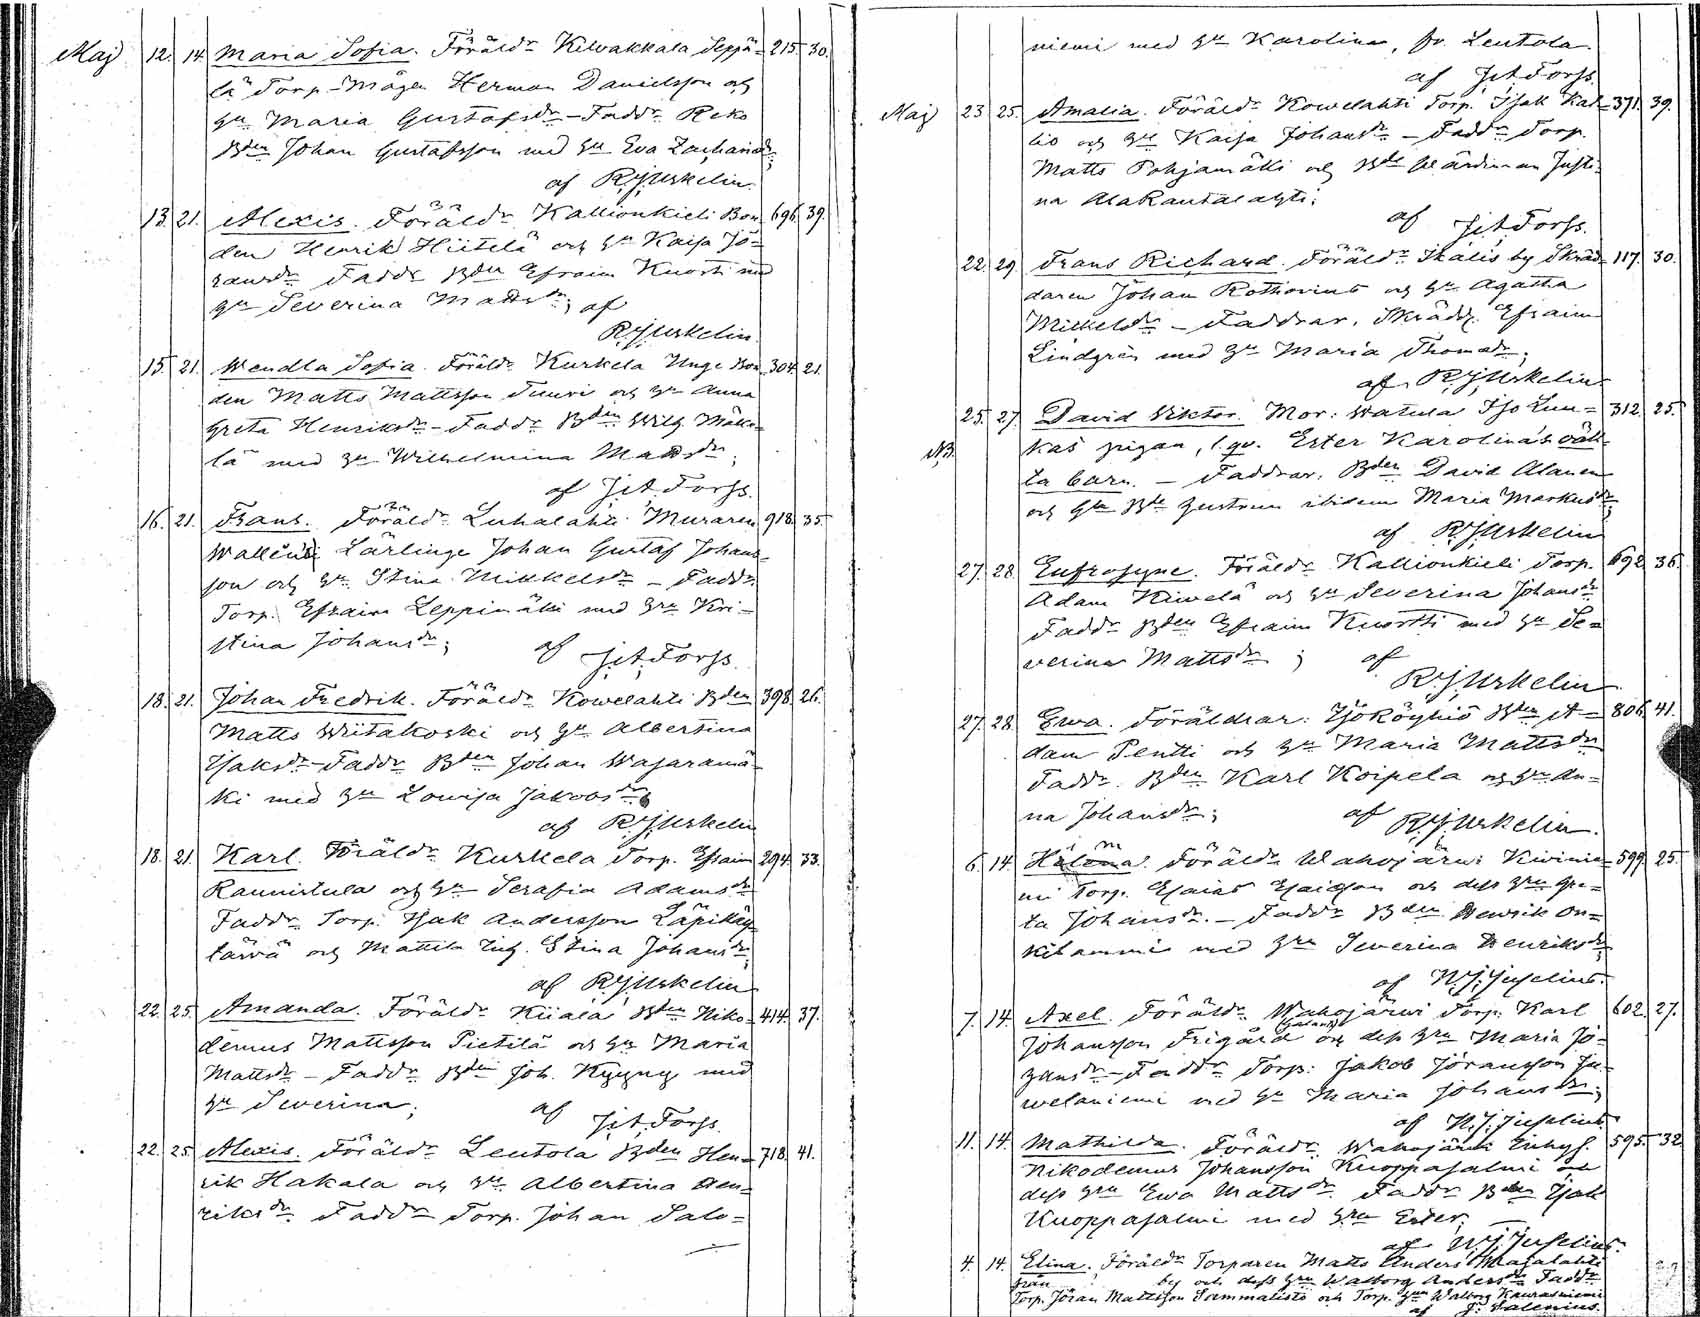 Maj 12. 14. Maria Sofia. Föräldr Kilvakkala Seppä- 215. 30.
lä Torp-Mågen Herman Danielsson och
hu Maria Gustafsdr - Faddr Reko
Bden Johan Gustafsson med hu Eva Zachariedr;
af R.J. Urkelin.
13. 21. Alexis. Föräldr Kallionkieli Bon- 696. 39.
den Henrik Hiitelä och hu Kaisa Jö-
ransdr Faddr Bden Efraim Knorti med
hu Severina Mattsdr; af
R.J. Urkelin.
15. 21. Wendla Sofia. Föräldr Kurkela Unge Bon- 304. 21.
den Matts Mattsson Tuuri och hu Anna
Greta Henriksdr - Faddr Bden Wilh. Mäke-
lä med hu Wilhelmina Mattsdr;
af J.A. Forss.
16. 21. Frans. Föräldr Luhalahti Muraren 918. 35.
Lärlinge Johan Gustaf Johans-
son och hu Stina Mikkelsdr - Faddr
Torp. Efraim Leppimäki med hu Kri-
stina Johansdr; af
J.A. Forss.
18. 21. Johan Fredrik. Föräldr Kowelahti Bden 398. 26.
Matts Wiitakoski och hu Albertina
Isaksdr - Faddr Bden Johan Wajaramä-
ki med hu Lowisa Jakobsdr;
af R.J. Urkelin
18. 21. Karl. Föräldr Kurkela Torp. Efraim 294. 33.
Raunistula och hu Serafia Adamsdr
Faddr Torp. Isak Andersson Läpikäy-
tävä och Mattila Stina Johansdr;
af R.J. Urkelin
22. 25. Amanda. Föräldr Kiiala Bden Niko- 414. 37.
demus Mattsson Pietilä och hu Maria
Mattsdr - Faddr Bden Joh. Kyyny med
hu Severina; af
J.A. Forss.
22. 25. Alexis. Föräldr Leutola Bden Hen- 718. 41.
rik Hakala och hu Albertina Hen-
riksdr Faddr Torp. Johan Salo-
niemi med hu Karolina, fr. Leutola.
af J.A. Forss.
Maj 23 25. Amalia. Föräldr Kowelahti Torp. Isak Kal- 371. 39.
lio och hu Kaisa Johansdr - Faddr Torp.
Matts Pohjamäki och Justi-
na AlaKantalahti;
af J.A. Forss.
22. 29. Frans Richard. Föräldr Ikalis by Skräd- 117. 30.
daren Johan Rothovius och hu Agatha
Mikkelsdr - Faddrar, Skrädd. Efraim
Lindgrén med hu Maria Thomasdr;
af R.J. Urkelin
25. 27. David Viktor. Mor: Watula Iso Luu- 312. 25.
NB. kas pigan, l. qv. Ester Karolina's oäk-
ta barn. - Faddrar, Bden David Alanen
och ibidem Maria Markusdr;
af R.J. Urkelin
27. 28. Eufrosyne. Föräldr Kallionkieli Torp. 692 36.
Adam Kiwelä och hu Severina Johansdr
Faddr Bden Efraim Knortti med hu Se-
verina Mattsdr; af
R.J. Urkelin
27. 28. Ewa. Föräldrar: Jyököyhiö Bden A- 806. 41.
dam Pentti och hu Maria Mattsdr
Faddr. Bden Karl Koipela och hu An-
na Johansdr; af
R.J. Urkelin.
6. 14. Föräldr Wahojärwi Kivinie- 599. 25.
mi Torp. Esaias Esaiasson och dess hru Gre-
ta Johansdr. - Faddr Bden Henrik On-
kilammi med hru Severina Henriksdr;
af N.J. Juselius.
7. 14. Axel. Föräldr Wahojärwi Torp. Karl 602. 27.
Johansson Frigård och dess hru Maria Jö-
ransdr - Faddr Torp: Jakob Jöransson Ju-
welaniemi med hr Maria Johansdr;
af N.J. Juselius
11. 14. Mathilda. Föräldr Wahojärwi Enhyf. 595. 32
Nikodemus Johansson Kuoppasalmi och
dess hru Ewa Mattsdr Faddr Bden Isak
Kuoppasalmi med hru Ester;
af N.J. Juselius.
4. 14. Elina. Föräldr Torparen Matts Anders Majalahti
från by och dess hru Walborg Andersdr Faddr
Torp. Jöran Mattsson Sammalisto och Torp. hru Walborg Kaurasniemi
af J. Salenius.